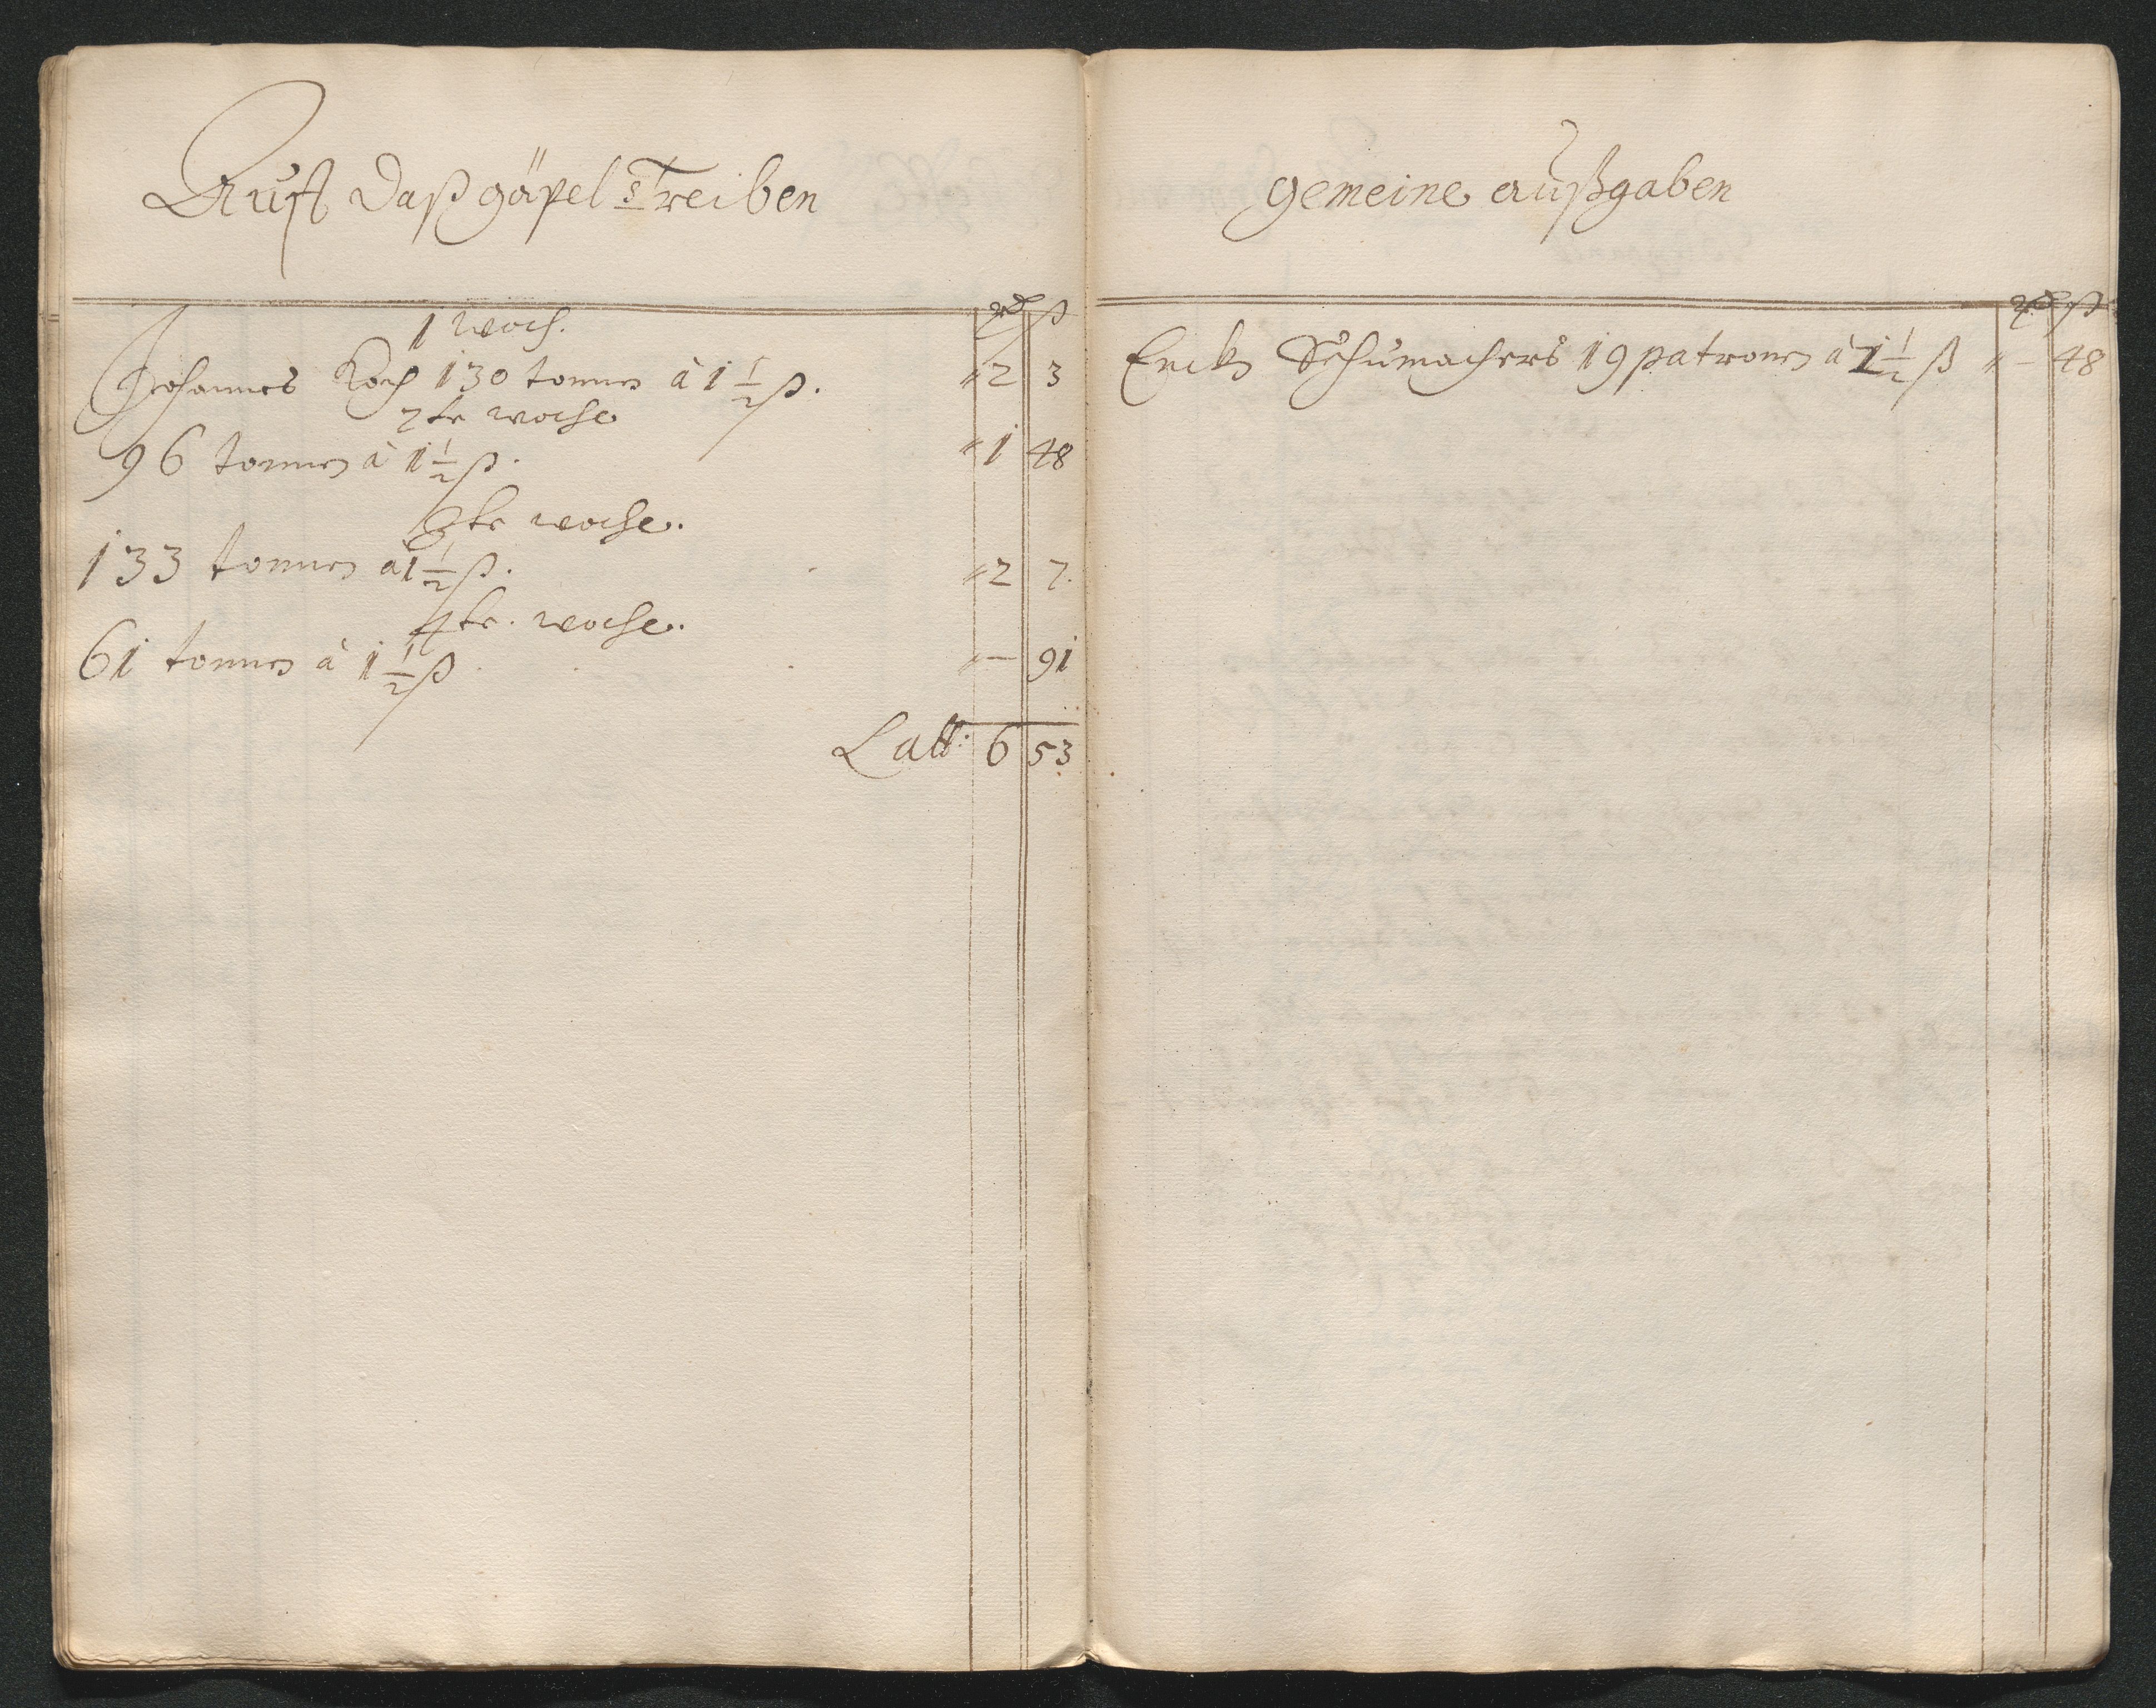 Auff daß göpel Treiben
rd ß
1 woch.
Johannes Koch 130 tonnen à 1 1/2 ß. 2 3
2te woche
96 tonnen à 1 1/2 ß. 1 48
3te woche.
133 tonnen à 1 1/2 ß. 2 7.
4te. woche.
61 tonnen à 1 1/2 ß — 91
Latt: 6 53
gemeine außgaben
rd ß
Erick Schumachers 19 patronen à 1 1/2 ß — 48